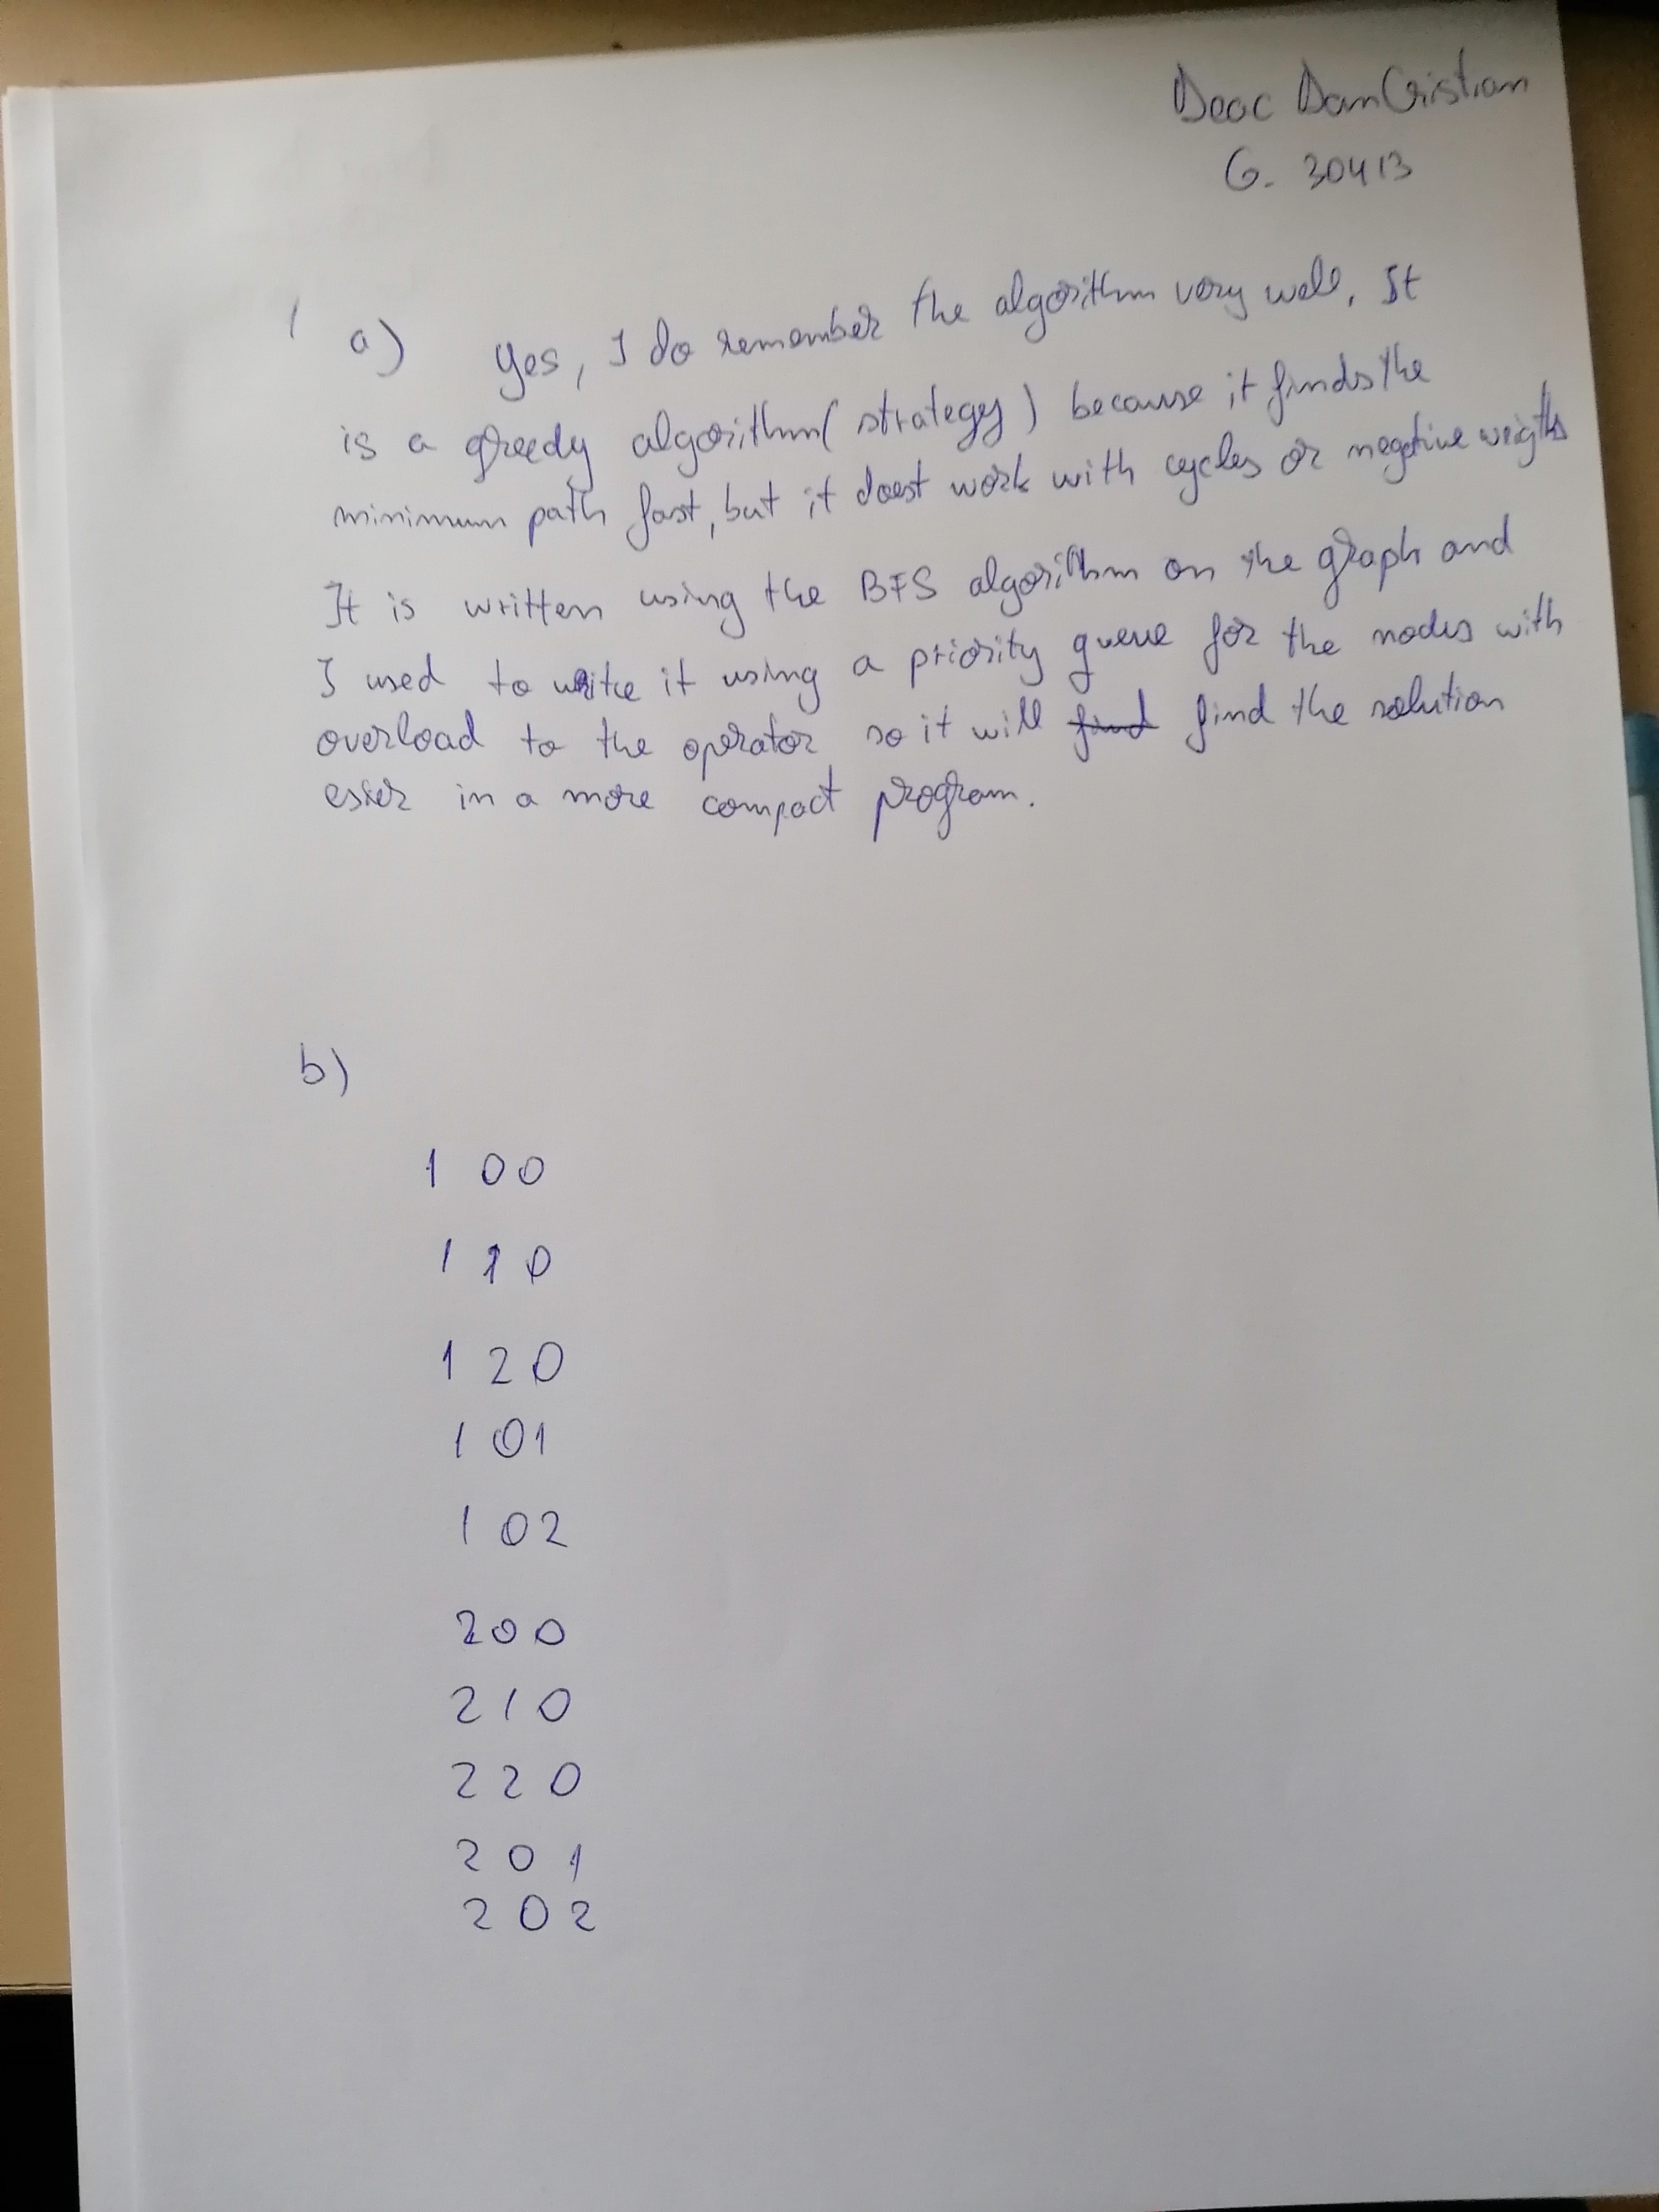 Deac Dan Cristian
G. 30413
1 a) Yes, I do remember the algorithm very well, It
is a greedy algorithm (strategy) because it finds the
minimum path fast, but it doest work with cycles or negative weigths
It is written using the BFS algorithm on the graph and
I used to write it using a priority queue for the nodes with
overload to the operator so it will find find the solution
esier in a more compact program.
b)
1 00
1 1 0
1 2 0
1 01
1 02
200
210
220
201
202